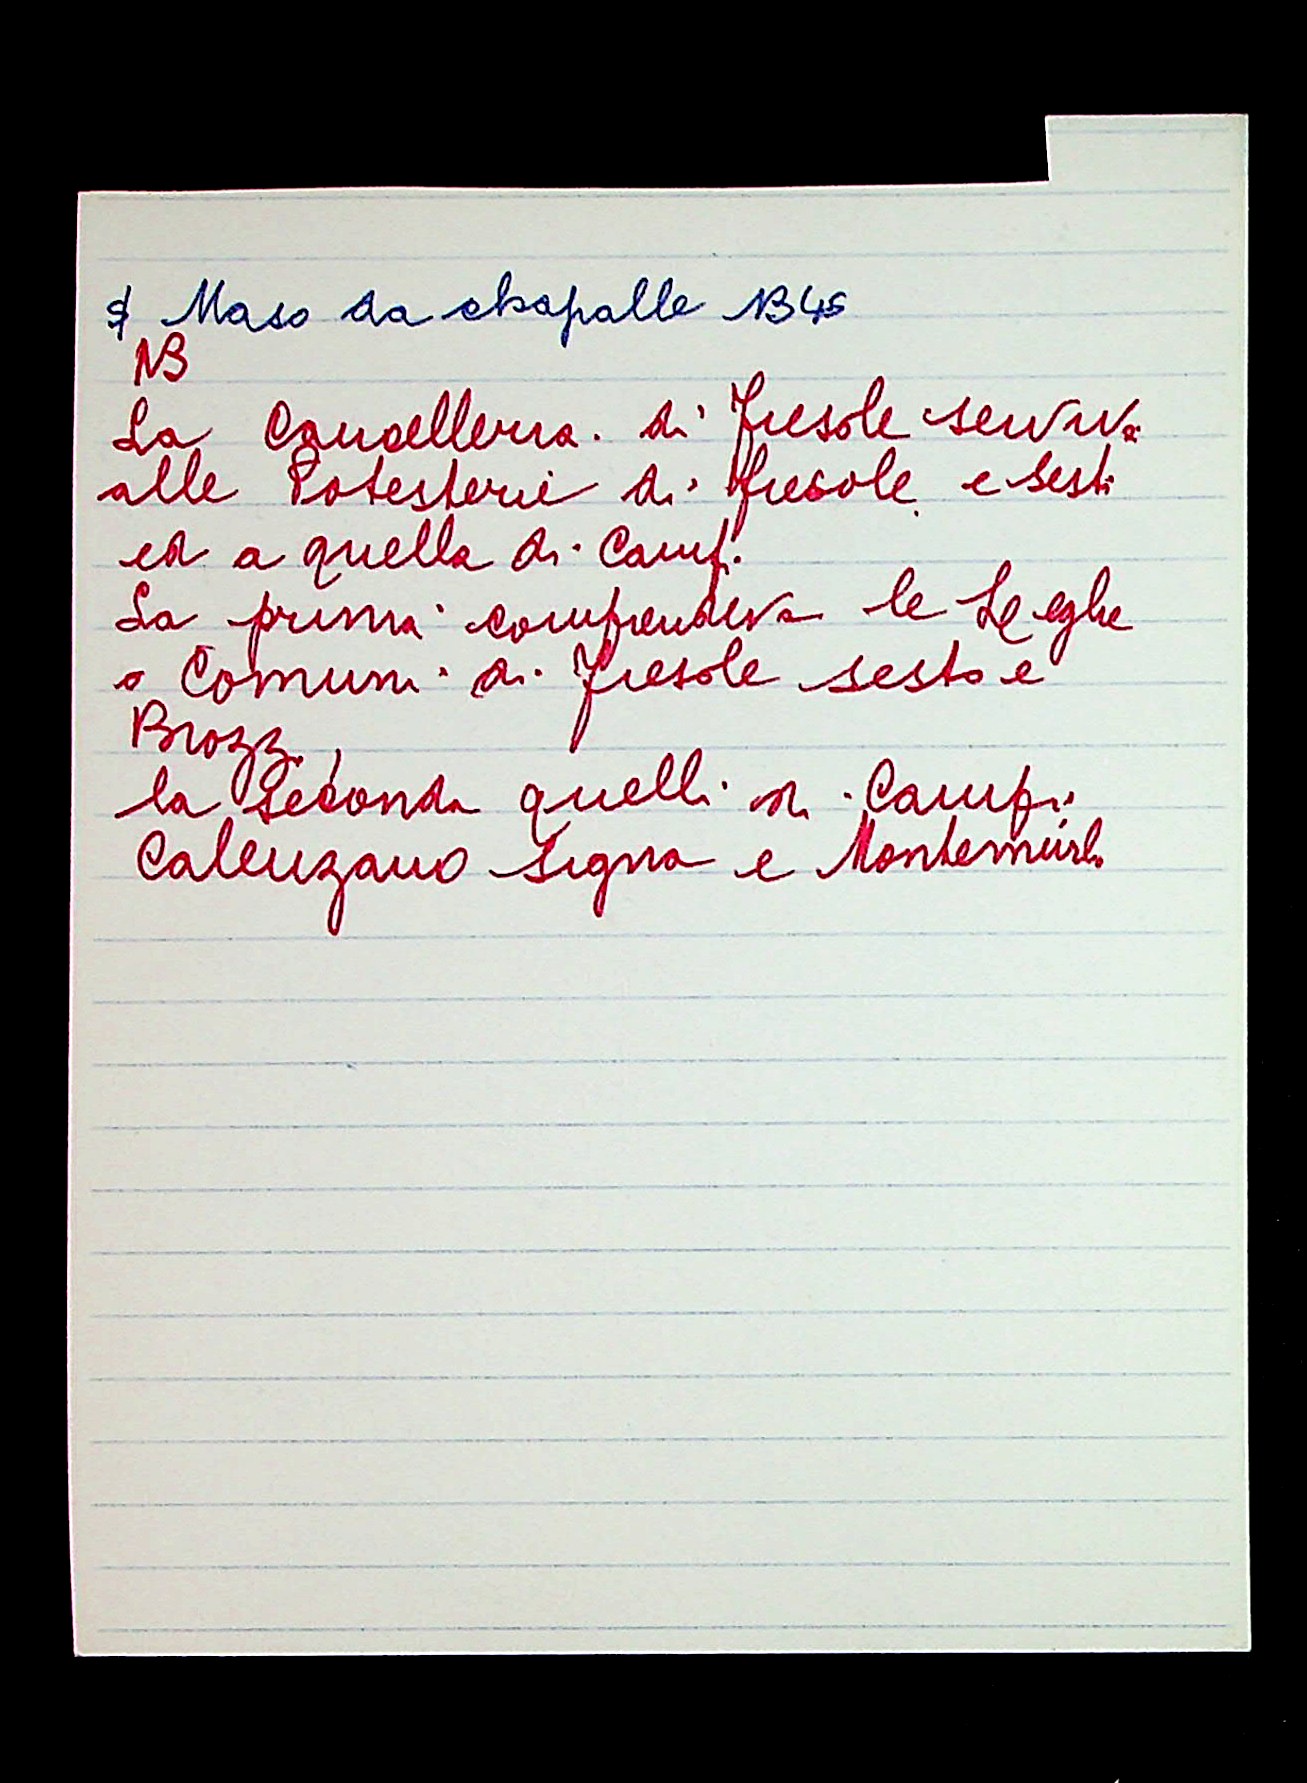 Maso da chapalle NB 45
NB
La Cancelleria di Fiesole serviva
alle Potesterie di Fiesole e Sesto
ed a quella di Campi.
La prima comprendeva le Leghe
o Comuni di Fiesole sesto e
Brozzi,
la Seconda quelli di Campi
Calenzano Signa e Montemurlo